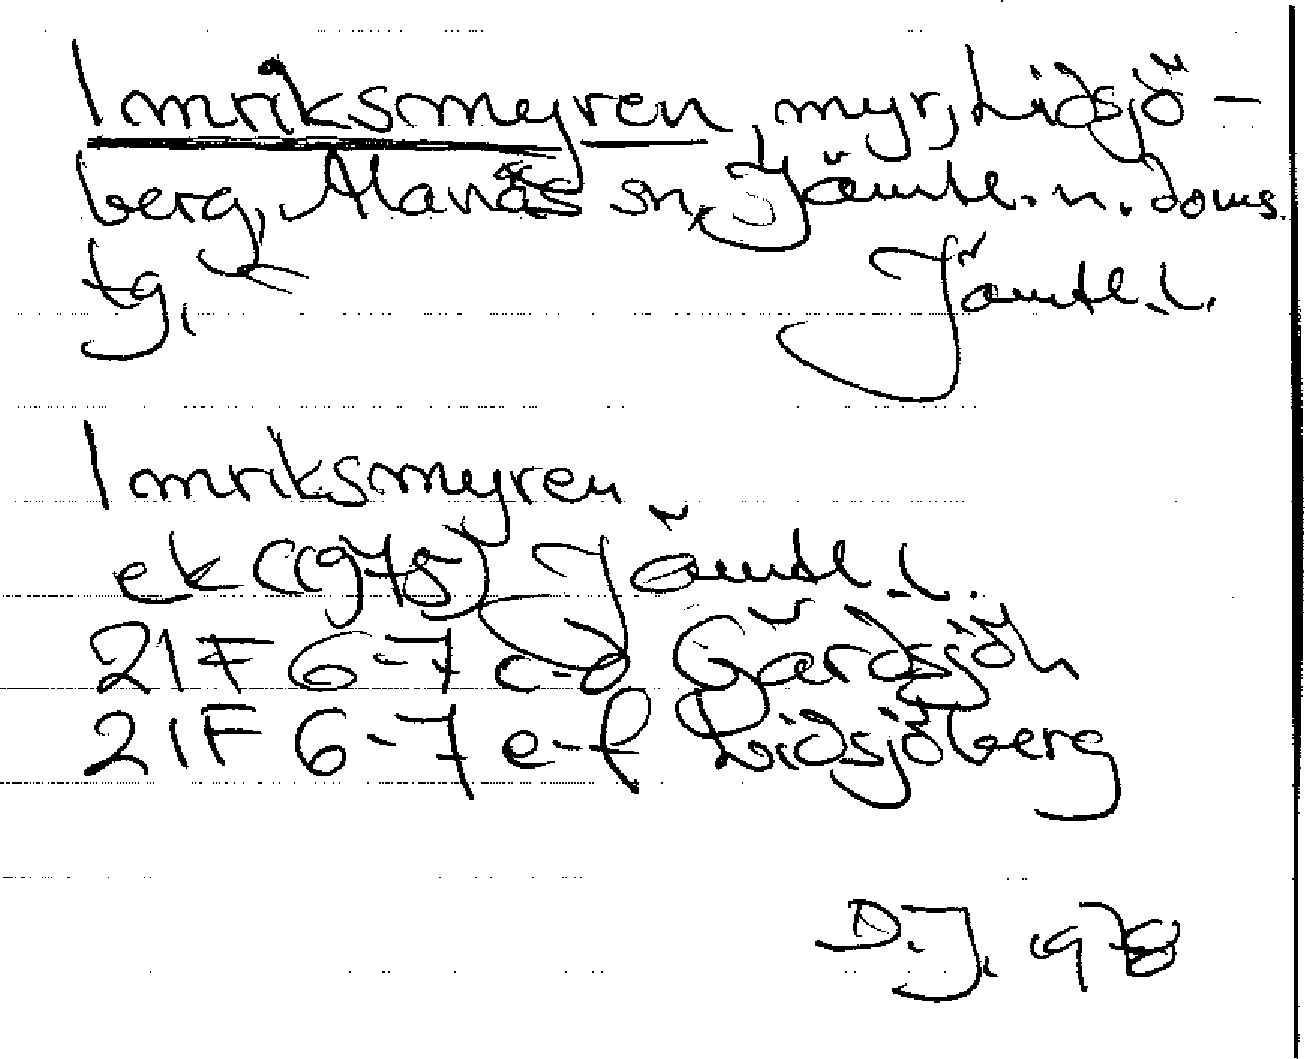 Imriksmyren, myr, Lidsjö-
berg, Alanäs sn, Jämtl. n. doms.
tg,
Jämtl. l.
Imriksmyren
ek (1975) Jämtl. l.
21F 6-7 c-d Gårdsjön
21F 6-7 e-f Lidsjöberg
D.J. 1978